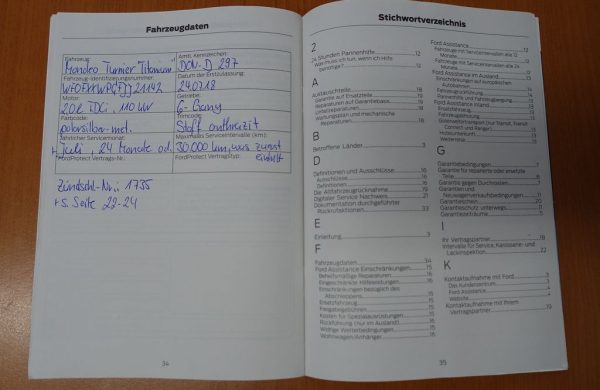 Fahrzeugdaten
Fahrzeug:
Mondeo Turnier Titanium
Amtl. Kennzeichen:
DON-D 297
Fahrzeug-Identifizierungsnummer:
Datum der Erstzulassung:
240718
Motor:
2.0 l TDCi, 110 kW
Getriebe:
6-Gang
Farbcode:
polarsilber-met.
Trimcode:
Stoff anthrazit
Jährlicher Servicemonat:
Juli, 24 Monate od.
Maximales Serviceintervall (km):
30.000 km, was zuerst
eintritt
FordProtect Vertrags-Nr.:
FordProtect Vertragstyp:
Zündschl.-Nr.: 1735
s. Seite 22-24
34
Stichwortverzeichnis
2
24 Stunden Pannenhilfe 12
Was muss ich tun, wenn ich Hilfe
benötige? 12
A
Austauschteile 18
Garantie auf Ersatzteile 19
Reparaturen auf Garantiebasis 19
Unfallreparaturen 18
Wartungsplan und mechanische
Reparaturen 18
B
Betroffene Länder 3
D
Definitionen und Ausschlüsse 16
Ausschlüsse 16
Definitionen 16
Die Altfahrzeugrücknahme 19
Digitaler Service Nachweis 21
Dokumentation durchgeführter
Rückrufaktionen 33
E
Einleitung 3
F
Fahrzeugdaten 34
Ford Assistance Einschränkungen 15
Behelfsmäßige Reparaturen 16
Eingeschränkte Hilfeleistungen 16
Einschränkungen bezüglich des
Abschleppens 15
Ersatzfahrzeug 15
Freigabegebühren 16
Kosten für Spezialausrüstungen 15
Rückführung (nur im Ausland) 16
Widrige Wetterbedingungen 16
Wohnwagen/Anhänger 16
Ford Assistance 12
Fahrzeuge mit Serviceintervallen alle 12
Monate 12
Fahrzeuge mit Serviceintervallen alle 24
Monate 12
Ford Assistance im Ausland 13
Einschränkungen auf europäischen
Autobahnen 14
Ersatzfahrzeug 14
Fahrzeugrückführung 14
Pannenhilfe und Fahrzeugbergung 13
Ford Assistance Inland 13
Ersatzfahrzeug 13
Fahrzeugabholung 13
Gütertransport (nur Transit, Transit
Connect und Ranger) 13
Hotelunterbringung 13
Weiterreise 13
G
Garantiebedingungen 7
Garantie für reparierte oder ersetzte
Teile 8
Garantie gegen Durchrosten 7
Garantien und
Neuwagenverkaufsbedingungen 11
Garantieschein 20
Garantieschutz unterwegs 11
Garantiezeiträume 5
I
Ihr Vertragspartner 18
Intervalle für Service, Karosserie- und
Lackinspektion 22
K
Kontaktaufnahme mit Ford 3
Das Kundenzentrum 3
Ford Assistance 4
Website 4
Kontaktaufnahme mit Ihrem
Vertragspartner 19
35